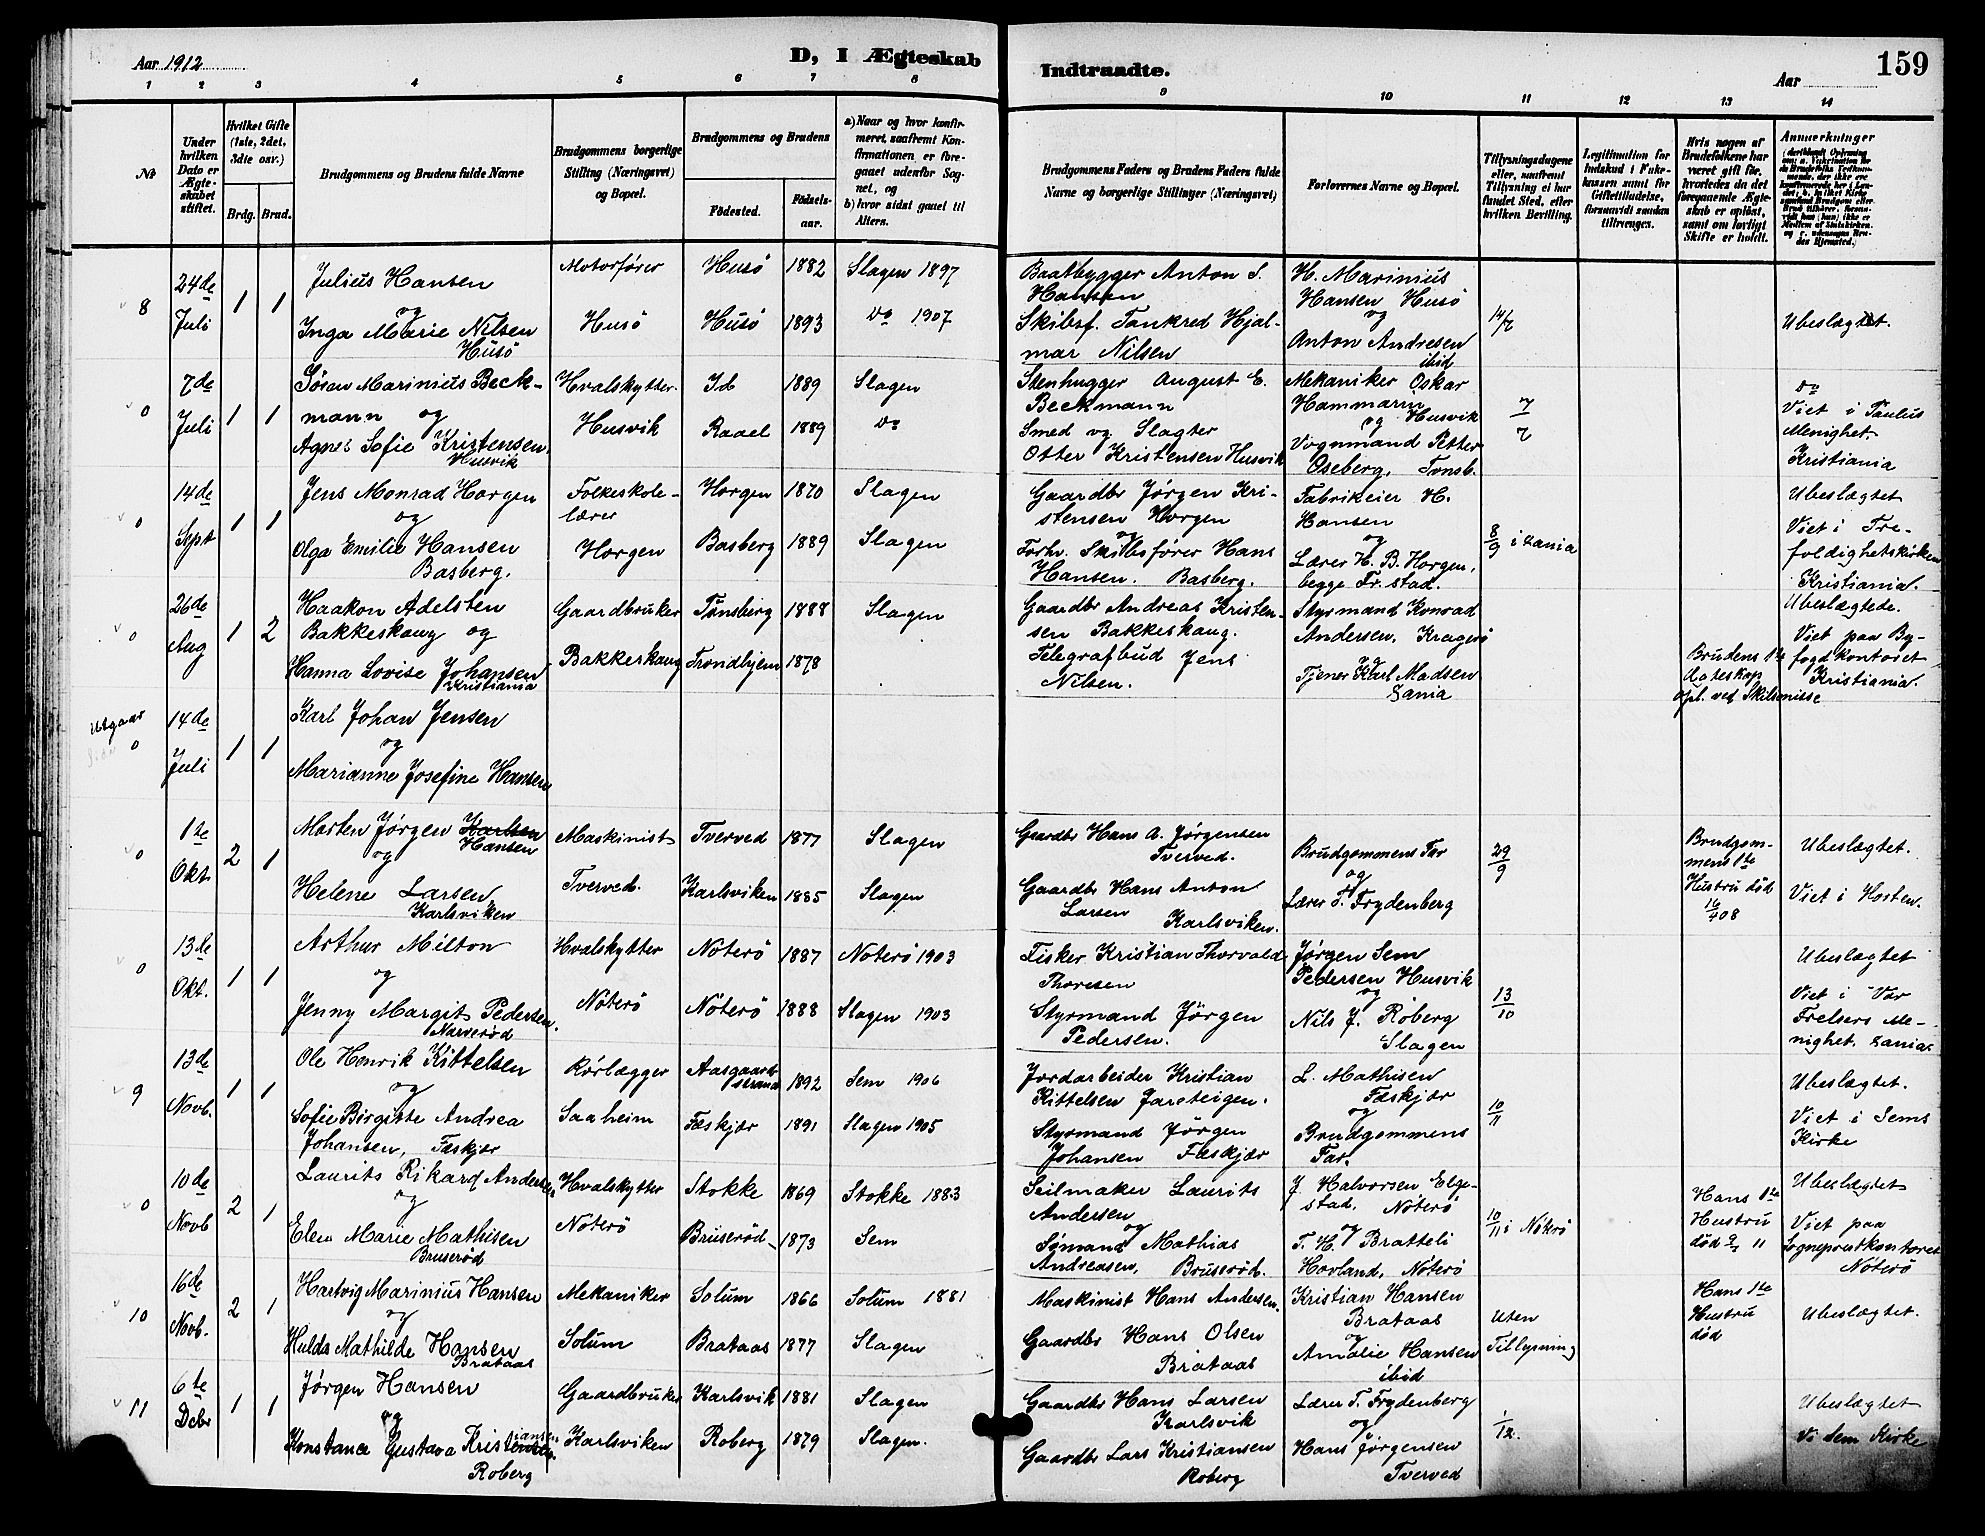 Aar 1912
D, I Ægteskab
Indtraadte.
Aar
159
1 2 3 4 5 6 7 8 9 10 11 12 13 14
No
Under hvilken Dato er Ægteskabet stiftet.
Hvilket Gifte (1ste, 2det, 3die osv.)
Brdg. Brud.
Brudgommens og Brudens fulde Navne
Brudgommens borgerlige Stilling (Næringsvei) og Bopæl.
Brudgommens og Brudens
Fødested. Fødselsaar.
a) Naar og hvor konfirmeret, saafremt Konfirmationen er foregaaet udenfor Sognet, og
b) hvor sidst gaaet til Alters.
Brudgommens Faders og Brudens Faders fulde Navne og borgerlige Stillinger (Næringsvei)
Forlovernes Navne og Bopæl.
Tillysningsdagene eller, saafremt Tillysning ei har fundet Sted, efter hvilken Bevilling.
Legitimation for Indskud i Enkekassen samt for Giftetilladelse, forsaavidt saadan tiltrænges.
Hvis nogen af Brudefolkene har været gift før, hvorledes da det foregaaende Ægteskab er opløst, samt om lovligt Skifte er holdt.
Anmærkninger
8
24de Juli
1 1
Julius Hansen
og
Inga Marie Nilsen
Husö
Motorförer
Husö
Husö 1882
Husö 1893
Slagen 1897
do 1907
Baatbygger Anton S.
Hansen
Skibsf. Tankred Hjal-
mar Nilsen
H. Marinius
Hansen Husö
og
Anton Andresen
ibid
14/7
Ubeslægtet.
0
7de Juli
1 1
Sören Marinius Beck-
mann og
Agnes Sofie Kristensen
Husvik
Hvalskytter
Husvik
Id 1889
Raael 1889
Slagen
do
Stenhugger August E.
Beckmann
Smed og Slagter
Otter Kristensen Husvik
Mekaniker Oskar
Hammarin
og Husvik
Vognmand Petter
Oseberg, Tønsb.
7/7
do
Viet i Paulus
Menighet.
Kristiania
0
14de Sept
1 1
Jens Monrad Horgen
og
Olga Emilie Hansen
Basberg.
Folkeskole-
lærer
Horgen
Horgen 1870
Basberg 1889
Slagen
Slagen
Gaardbr Jörgen Kri-
stensen Horgen
og
Forhv. Skibsförer Hans
Hansen. Basberg.
Fabrikeier H.
Hansen
og
Lærer H. B. Horgen,
begge Fr.stad.
8/9 i Xania
Ubeslægtet
Viet i Tre-
foldighetskirken
Kristiania.
0
26de Aug
1 2
Haakon Adelsten
Bakkeskaug og
Hanna Lovise Johansen
Kristiania
Gaardbruker
Bakkeskaug
Tønsberg 1888
Trondhjem 1878
Slagen
Gaardbr Andreas Kristen-
sen Bakkeskaug.
Telegrafbud Jens
Nilsen.
Styrmand Konrad
Andersen, Kragerö
og
Tjener Karl Madsen
Xania
Brudens 1ste
Ægteskap
opl. ved Skilsmisse
Ubeslægtede.
Viet paa By-
fogdkontoret
Kristiania.
Utgaar
0
14de Juli
1 1
Karl Johan Jensen
og
Marianne Josefine Hansen
0
1te Okt
2 1
Morten Jörgen Karlsen
Hansen
og
Helene Larsen
Karlsviken
Maskinist
Tverved.
Tverved 1877
Karlsviken 1885
Slagen
Slagen
Gaardbr Hans A. Jörgensen
Tverved.
Gaardbr Hans Anton
Larsen Karlsviken.
Brudgommens Far
og
Lærer T. Frydenberg
29/9
Brudgom-
mens 1te
Hustru död
08
Ubeslægtet.
Viet i Horten.
0
13de Okt.
1 1
Arthur Milton
og
Jenny Margit Pedersen.
Narverød
Hvalskytter
Nöterö
Nöterö 1887
Nöterö 1888
Nöterö 1903
Slagen 1903
Fisker Kristian Thorvald
Thoresen
Styrmand Jörgen
Pedersen.
Jörgen Sem
Pedersen Husvik
og
Nils J. Roberg
Slagen
13/10
Ubeslægtet
Viet i Vor
Frelsers Me-
nighet. Xania
9
13de Novb.
1 1
Ole Henrik Kittelsen
og
Sofie Birgitte Andrea
Johansen, Fæskjær
Rörlægger
Saaheim
Aasgaard-
strand 1892
Fæskjær 1891
Sem 1906
Slagen 1905
Jordarbeider Kristian
Kittelsen Jareteigen.
Styrmand Jörgen
Johansen Fæskjær
L. Mathisen
Fæskjær
og
Brudgommens
Far.
10/11
Ubeslægtet.
Viet i Sems
Kirke
0
10de Novb
2 1
Laurits Rikard Andersen
og
Elen Marie Mathisen
Bruserød
Hvalskytter
Nöterö
Stokke 1869
Bruserød 1873
Stokke 1883
Sem
Seilmaker Laurits
Andersen
og
Sømand Mathias
Andreasen, Bruseröd.
J. Halvorsen Elge-
stad. Nöterö
og
T. H. Bratteli
Hovland, Nöterö
10/11 i Nöterö
Hans 1te
Hustru
död 11
Ubeslægtet
Viet paa
Sogneprestkontoret
Nöterö
10
16de Novb.
2 1
Hartvig Marinius Hansen
og
Hulda Mathilde Hansen
Brataas
Mekaniker
Solum
Solum 1866
Brataas 1877
Solum 1881
Slagen
Maskinist Hans Andersen.
Gaardbr Hans Olsen
Brataas
Kristian Hansen
Brataas
og
Amalie Hansen
ibid
Uten
Tillysning
Hans 1te
Hustru
död
Ubeslægtet.
11
6te Debr
1 1
Jörgen Hansen
og
Konstance Gustava Kristensen
iansen
Roberg
Gaardbruker
Karlsviken
Karlsvik 1881
Roberg 1879
Slagen
Slagen.
Gaardbr Hans Larsen
Karlsvik
Gaardbr Lars Kristiansen
Roberg
Lærer T. Frydenberg
og
Hans Jörgensen
Tverved
1/12.
Ubeslægtet
Vi Sem Kirke